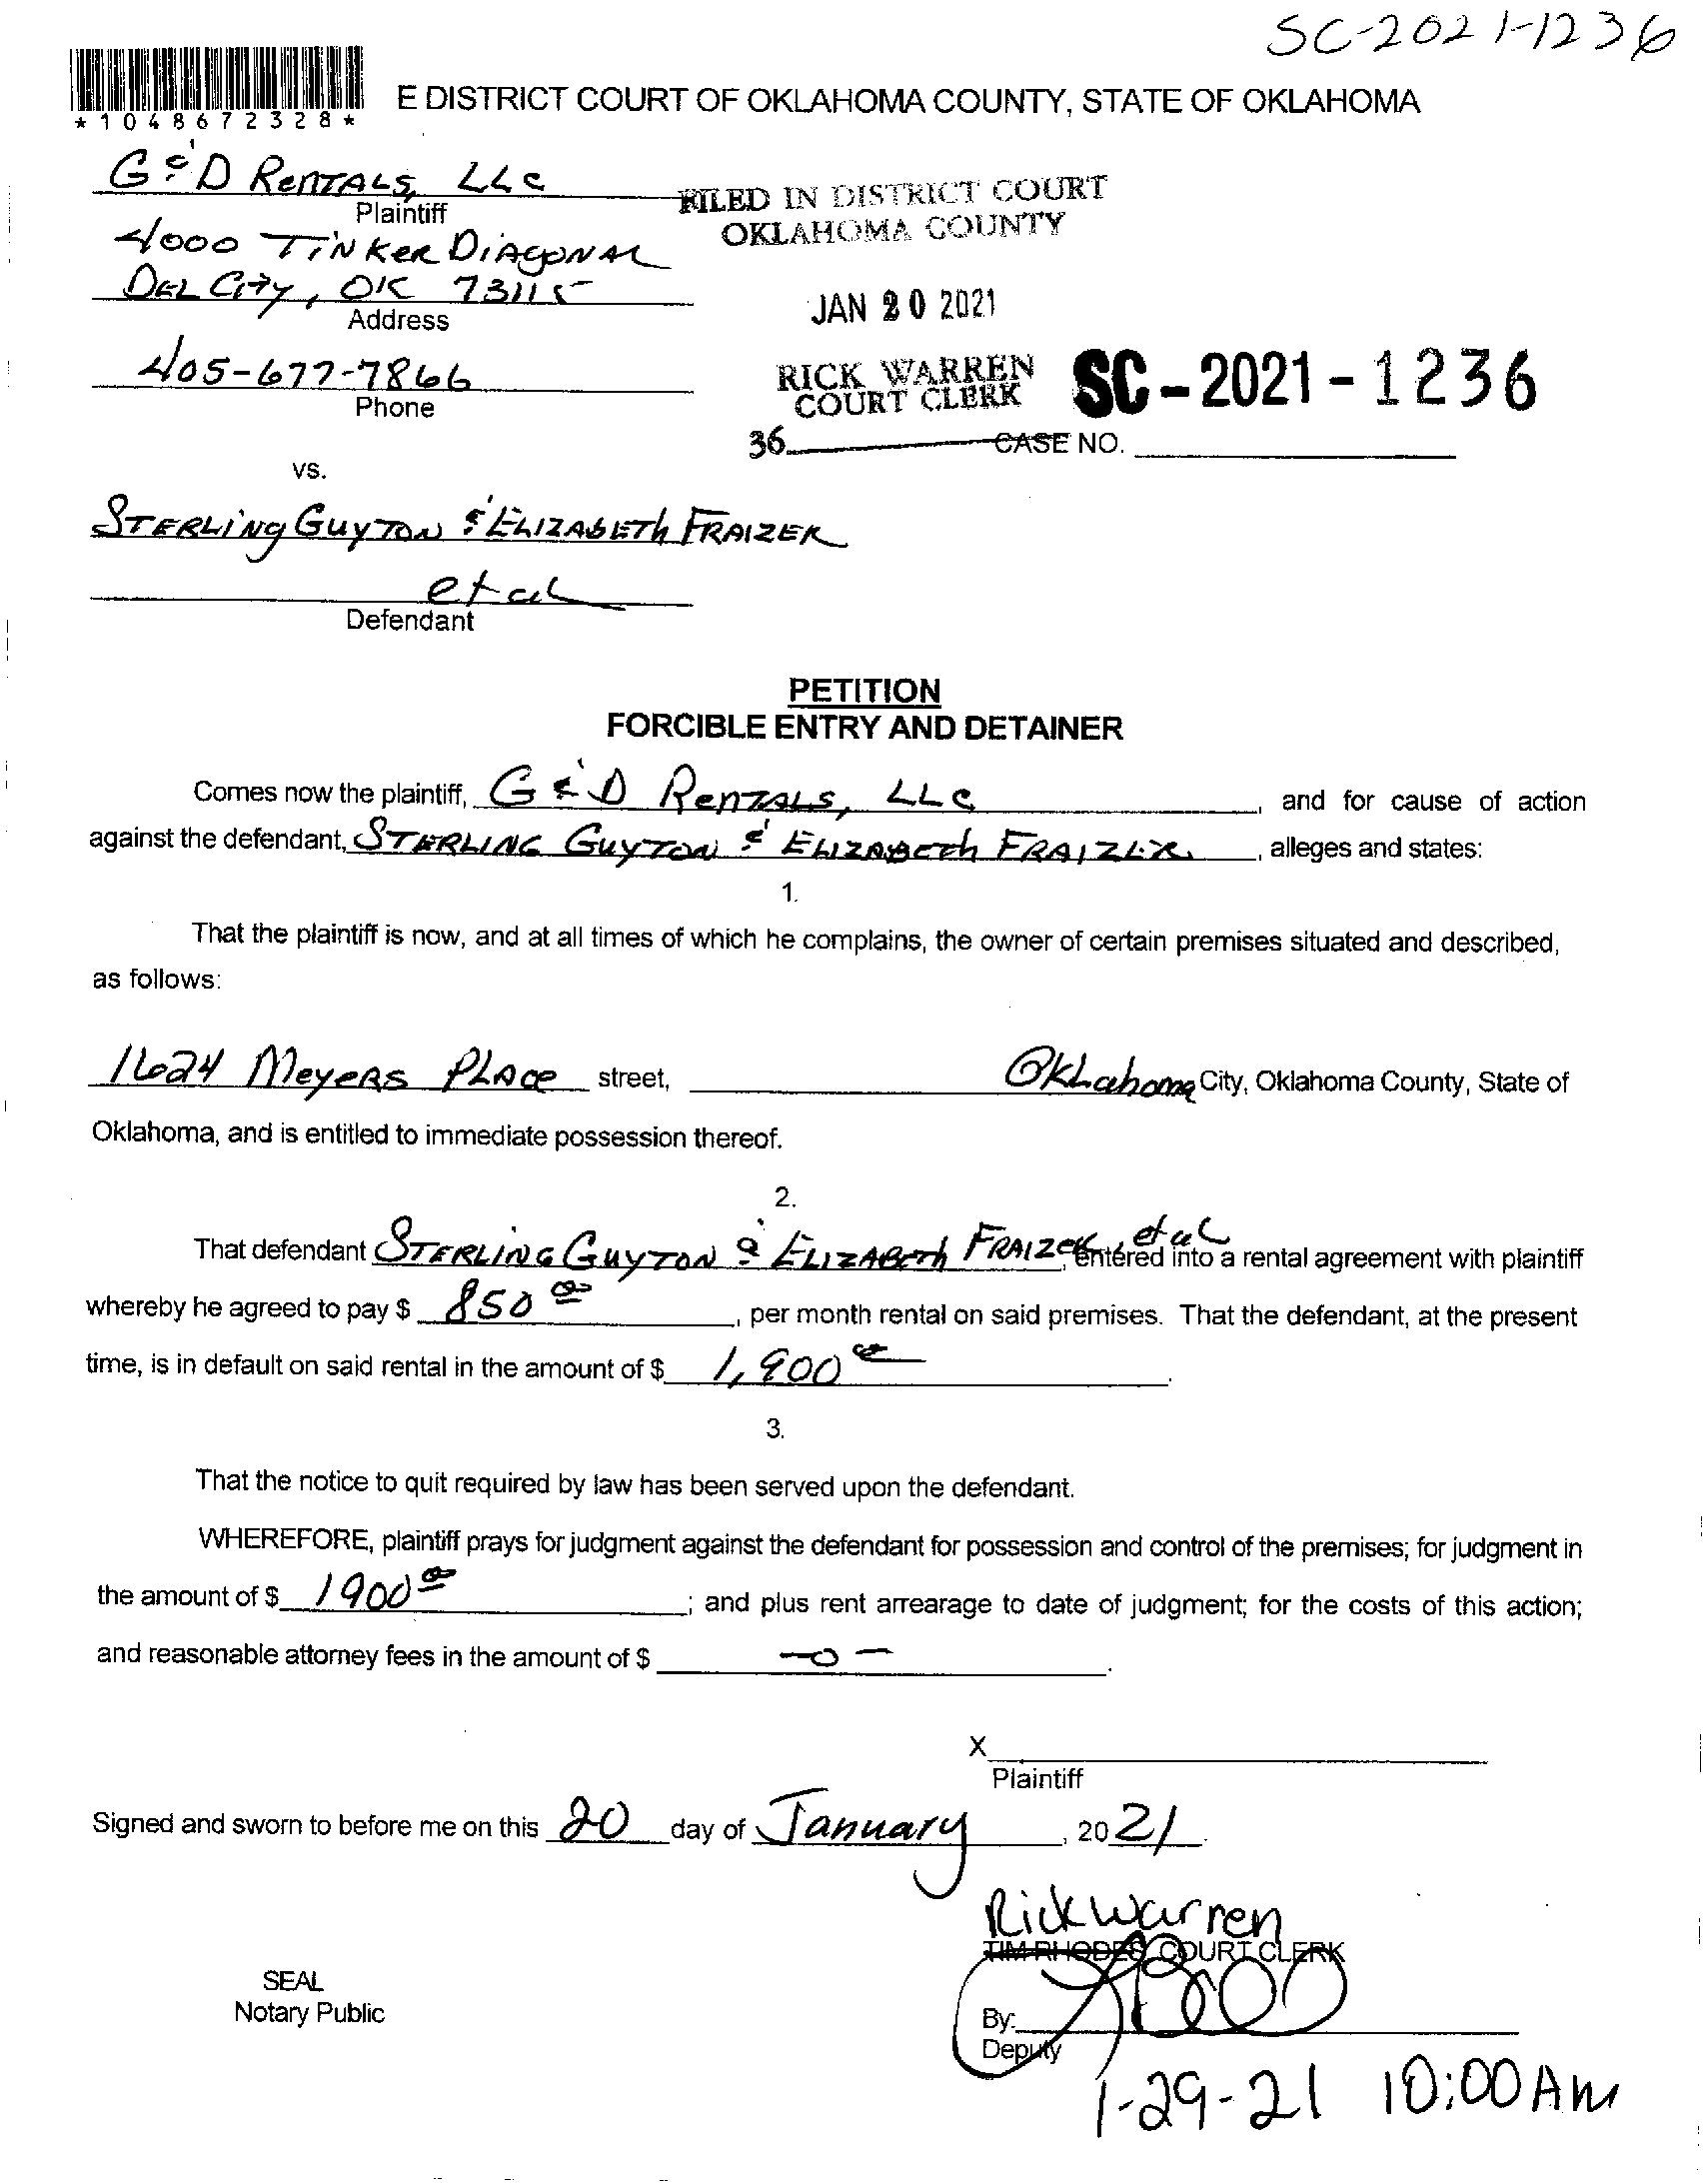 SC-2021-1236
*1048672328*
E DISTRICT COURT OF OKLAHOMA COUNTY, STATE OF OKLAHOMA
G & D RENTALS, LLC
Plaintiff
4000 TINKER DIAGONAL
DEL CITY, OK 73115
Address
405-677-7866
Phone
FILED IN DISTRICT COURT
OKLAHOMA COUNTY
JAN 20 2021
RICK WARREN
COURT CLERK
SC-2021-1236
36
CASE NO.
vs.
STERLING GUYTON & ELIZABETH FRAIZER
et al
Defendant
PETITION
FORCIBLE ENTRY AND DETAINER
Comes now the plaintiff, G & D RENTALS, LLC, and for cause of action
against the defendant, STERLING GUYTON & ELIZABETH FRAIZER, alleges and states:
1.
That the plaintiff is now, and at all times of which he complains, the owner of certain premises situated and described,
as follows:
1624 MEYERS PLACE street, Oklahoma City, Oklahoma County, State of
Oklahoma, and is entitled to immediate possession thereof.
2.
That defendant STERLING GUYTON & ELIZABETH FRAIZER, et al entered into a rental agreement with plaintiff
whereby he agreed to pay $ 850 00, per month rental on said premises. That the defendant, at the present
time, is in default on said rental in the amount of $ 1,900 00.
3.
That the notice to quit required by law has been served upon the defendant.
WHEREFORE, plaintiff prays for judgment against the defendant for possession and control of the premises; for judgment in
the amount of $ 1900 00; and plus rent arrearage to date of judgment; for the costs of this action;
and reasonable attorney fees in the amount of $ -0-.
X
Plaintiff
Signed and sworn to before me on this 20 day of January, 2021.
Rick Warren
TIM RHODES COURT CLERK
SEAL
Notary Public
By:
Deputy
1-29-21 10:00AM